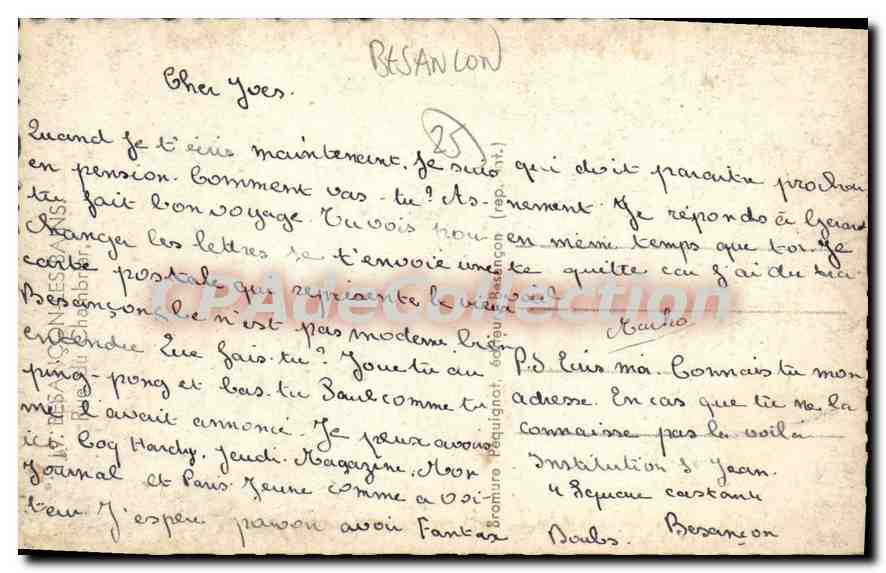 BESANCON
25
Cher Yves.
Quand Je t'écris maintenant. Je suis
en pension. Comment vas-tu? As-
tu fait bon voyage. Tu vois pour
changer les lettres je t'envoie une
carte postale qui représente le vieux
Besançon. Ce n'est pas moderne bien
entendu. Que fais-tu? Joue tu au
ping-pong et bas-tu Paul comme tu
me l'avait annoncé. Je peux avoir
ici Coq Hardy, Jeudi-Magazine, Mon
Journal et Paris Jeune comme a Voi-
teur J'espère pouvoir avoir Fantax
qui doit paraitre prochai
nement. Je réponds à Gerard
en même temps que toi. Je
te quitte car j'ai du tra
vail
P.S Ecris moi. Connais tu mon
adresse. En cas que tu ne la
connaisse pas la voilà
Institution St Jean.
4 Square castan
Besançon
Doubs.
17. BESANÇON-LES-BAINS
Rue du Chambrier
Bromure Péquignot, éditeur, Besançon (rep. int.)
CPAdeCollection